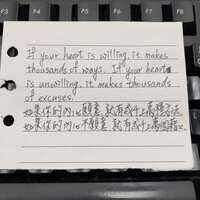 F3 F4 F5 F6 F7 F8
If your heart is willing, it makes
thousands of ways. If your heart
is unwilling, it makes thousands
of excuses.
如果你的内心愿意,就有成千上万种方法
如果你的内心不愿意,就有成千上万种借口。